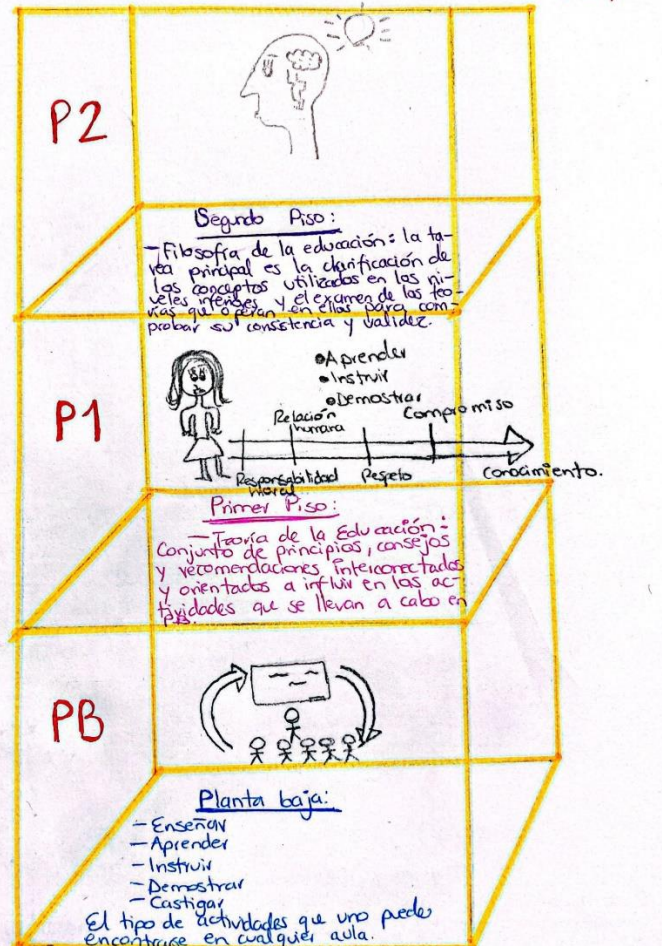 P2
Segundo Piso:
- Filosofía de la educación: la ta-
rea principal es la clarificación de
los conceptos utilizados en los ni-
veles inferiores y el examen de las teo-
rías que operan en ellas para com-
probar su consistencia y validez.
P1
• Aprender
• Instruir
• Demostrar
Relación humana
Compromiso
Responsabilidad moral
Respeto
Conocimiento.
Primer Piso:
- Teoría de la Educación:
Conjunto de principios, consejos
y recomendaciones interconectados
y orientados a influir en las ac-
tividades que se llevan a cabo en
PB.
PB
Planta baja:
- Enseñar
- Aprender
- Instruir
- Demostrar
- Castigar
El tipo de actividades que uno puede
encontrarse en cualquier aula.